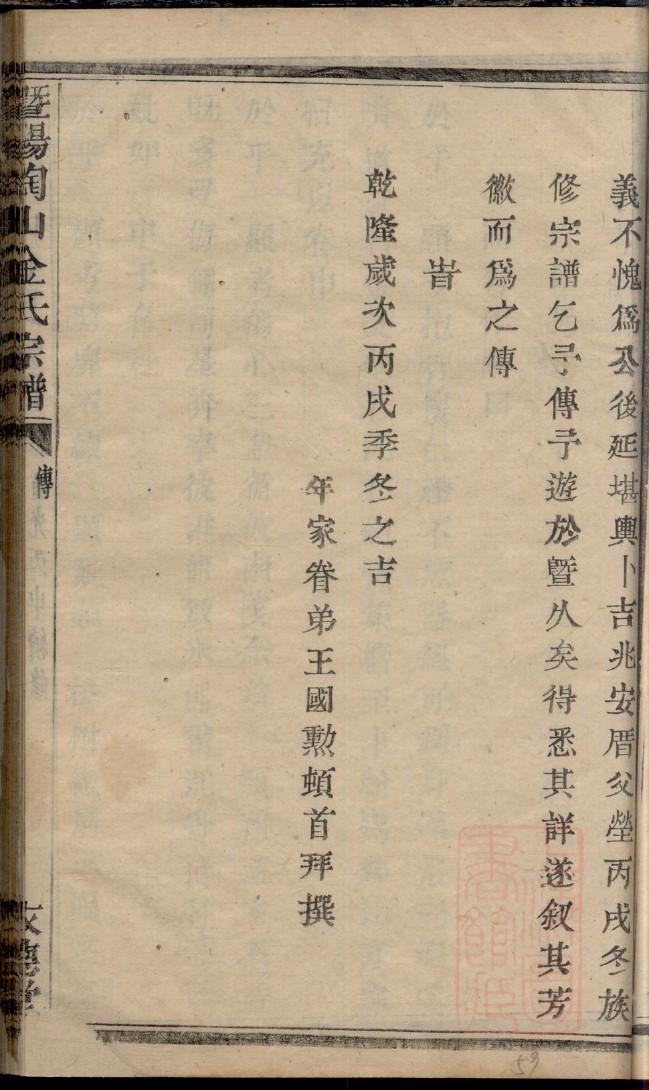 義不愧爲公後延堪輿卜吉兆安厝父塋丙戌冬族
修宗譜乞予傳予遊於暨久矣得悉其詳遂叙其芳
徽而爲之傳
旹
乾隆歲次丙戌季冬之吉
年家眷弟王國勲頓首拜撰
暨陽陶山金氏宗譜
傳
文德堂
59